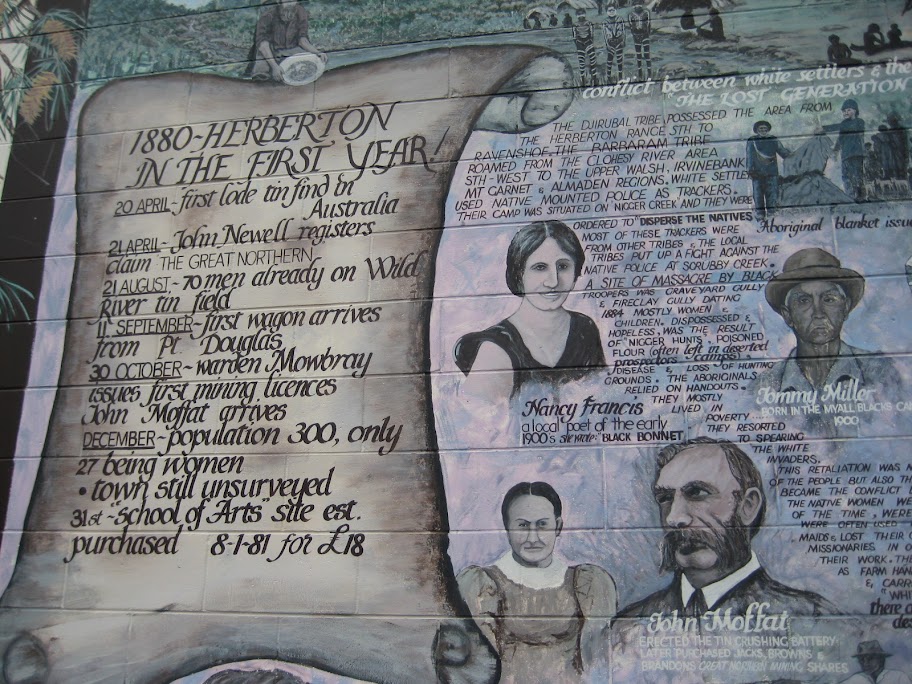 1880~HERBERTON
IN THE FIRST YEAR!
20 APRIL~first lode tin find in
Australia
21 APRIL~John Newell registers
claim THE GREAT NORTHERN
21 AUGUST~70 men already on Wild
River tin field
11 SEPTEMBER~first wagon arrives
from Pt. Douglas
30 OCTOBER~warden Mowbray
issues first mining licences
John Moffat arrives
DECEMBER~population 300, only
27 being women
• town still unsurveyed
31st~"School of Arts" site est.
purchased 8-1-81 for £18
conflict between white settlers & the
THE LOST GENERATION
THE DJIRUBAL TRIBE POSSESSED THE AREA FROM
THE HERBERTON RANGE STH TO
RAVENSHOE. THE BARBARAM TRIBE
ROAMED FROM THE CLOHESY RIVER AREA
STH-WEST TO THE UPPER WALSH, IRVINEBANK
MT GARNET & ALMADEN REGIONS. WHITE SETTLER
USED NATIVE MOUNTED POLICE AS TRACKERS.
THEIR CAMP WAS SITUATED ON NIGGER CREEK AND THEY WERE
ORDERED TO "DISPERSE THE NATIVES
MOST OF THESE TRACKERS WERE
FROM OTHER TRIBES & THE LOCAL
TRIBES PUT UP A FIGHT AGAINST THE
NATIVE POLICE AT SCRUBBY CREEK.
A SITE OF MASSACRE BY BLACK
TROOPERS WAS GRAVEYARD GULLY
& FIRECLAY GULLY DATING
1884 MOSTLY WOMEN &
CHILDREN. DISPOSSESSED &
HOPELESS, WAS THE RESULT
OF "NIGGER HUNTS", POISONED
FLOUR (often left in deserted
prospectors camps)
DISEASE & LOSS OF HUNTING
GROUNDS. THE ABORIGINALS
RELIED ON HANDOUTS.
THEY MOSTLY
LIVED IN
POVERTY....
THEY RESORTED
TO SPEARING
THE WHITE
INVADERS.
THIS RETALIATION WAS
OF THE PEOPLE BUT ALSO
BECAME THE CONFLICT
THE NATIVE WOMEN
OF THE TIME, WERE
WERE OFTEN USED
MAIDS & LOST THEIR
MISSIONARIES IN
THEIR WORK. THE
AS FARM
&
there
Aboriginal blanket issue
Nancy Francis
a local poet of the early
1900s she wrote: BLACK BONNET
Tommy Miller
BORN IN THE MYALL BLACKS
1900
John Moffat
ERECTED THE TIN CRUSHING BATTERY
LATER PURCHASED JACKS, BROWNS &
BRANDONS GREAT NORTHERN MINING SHARES